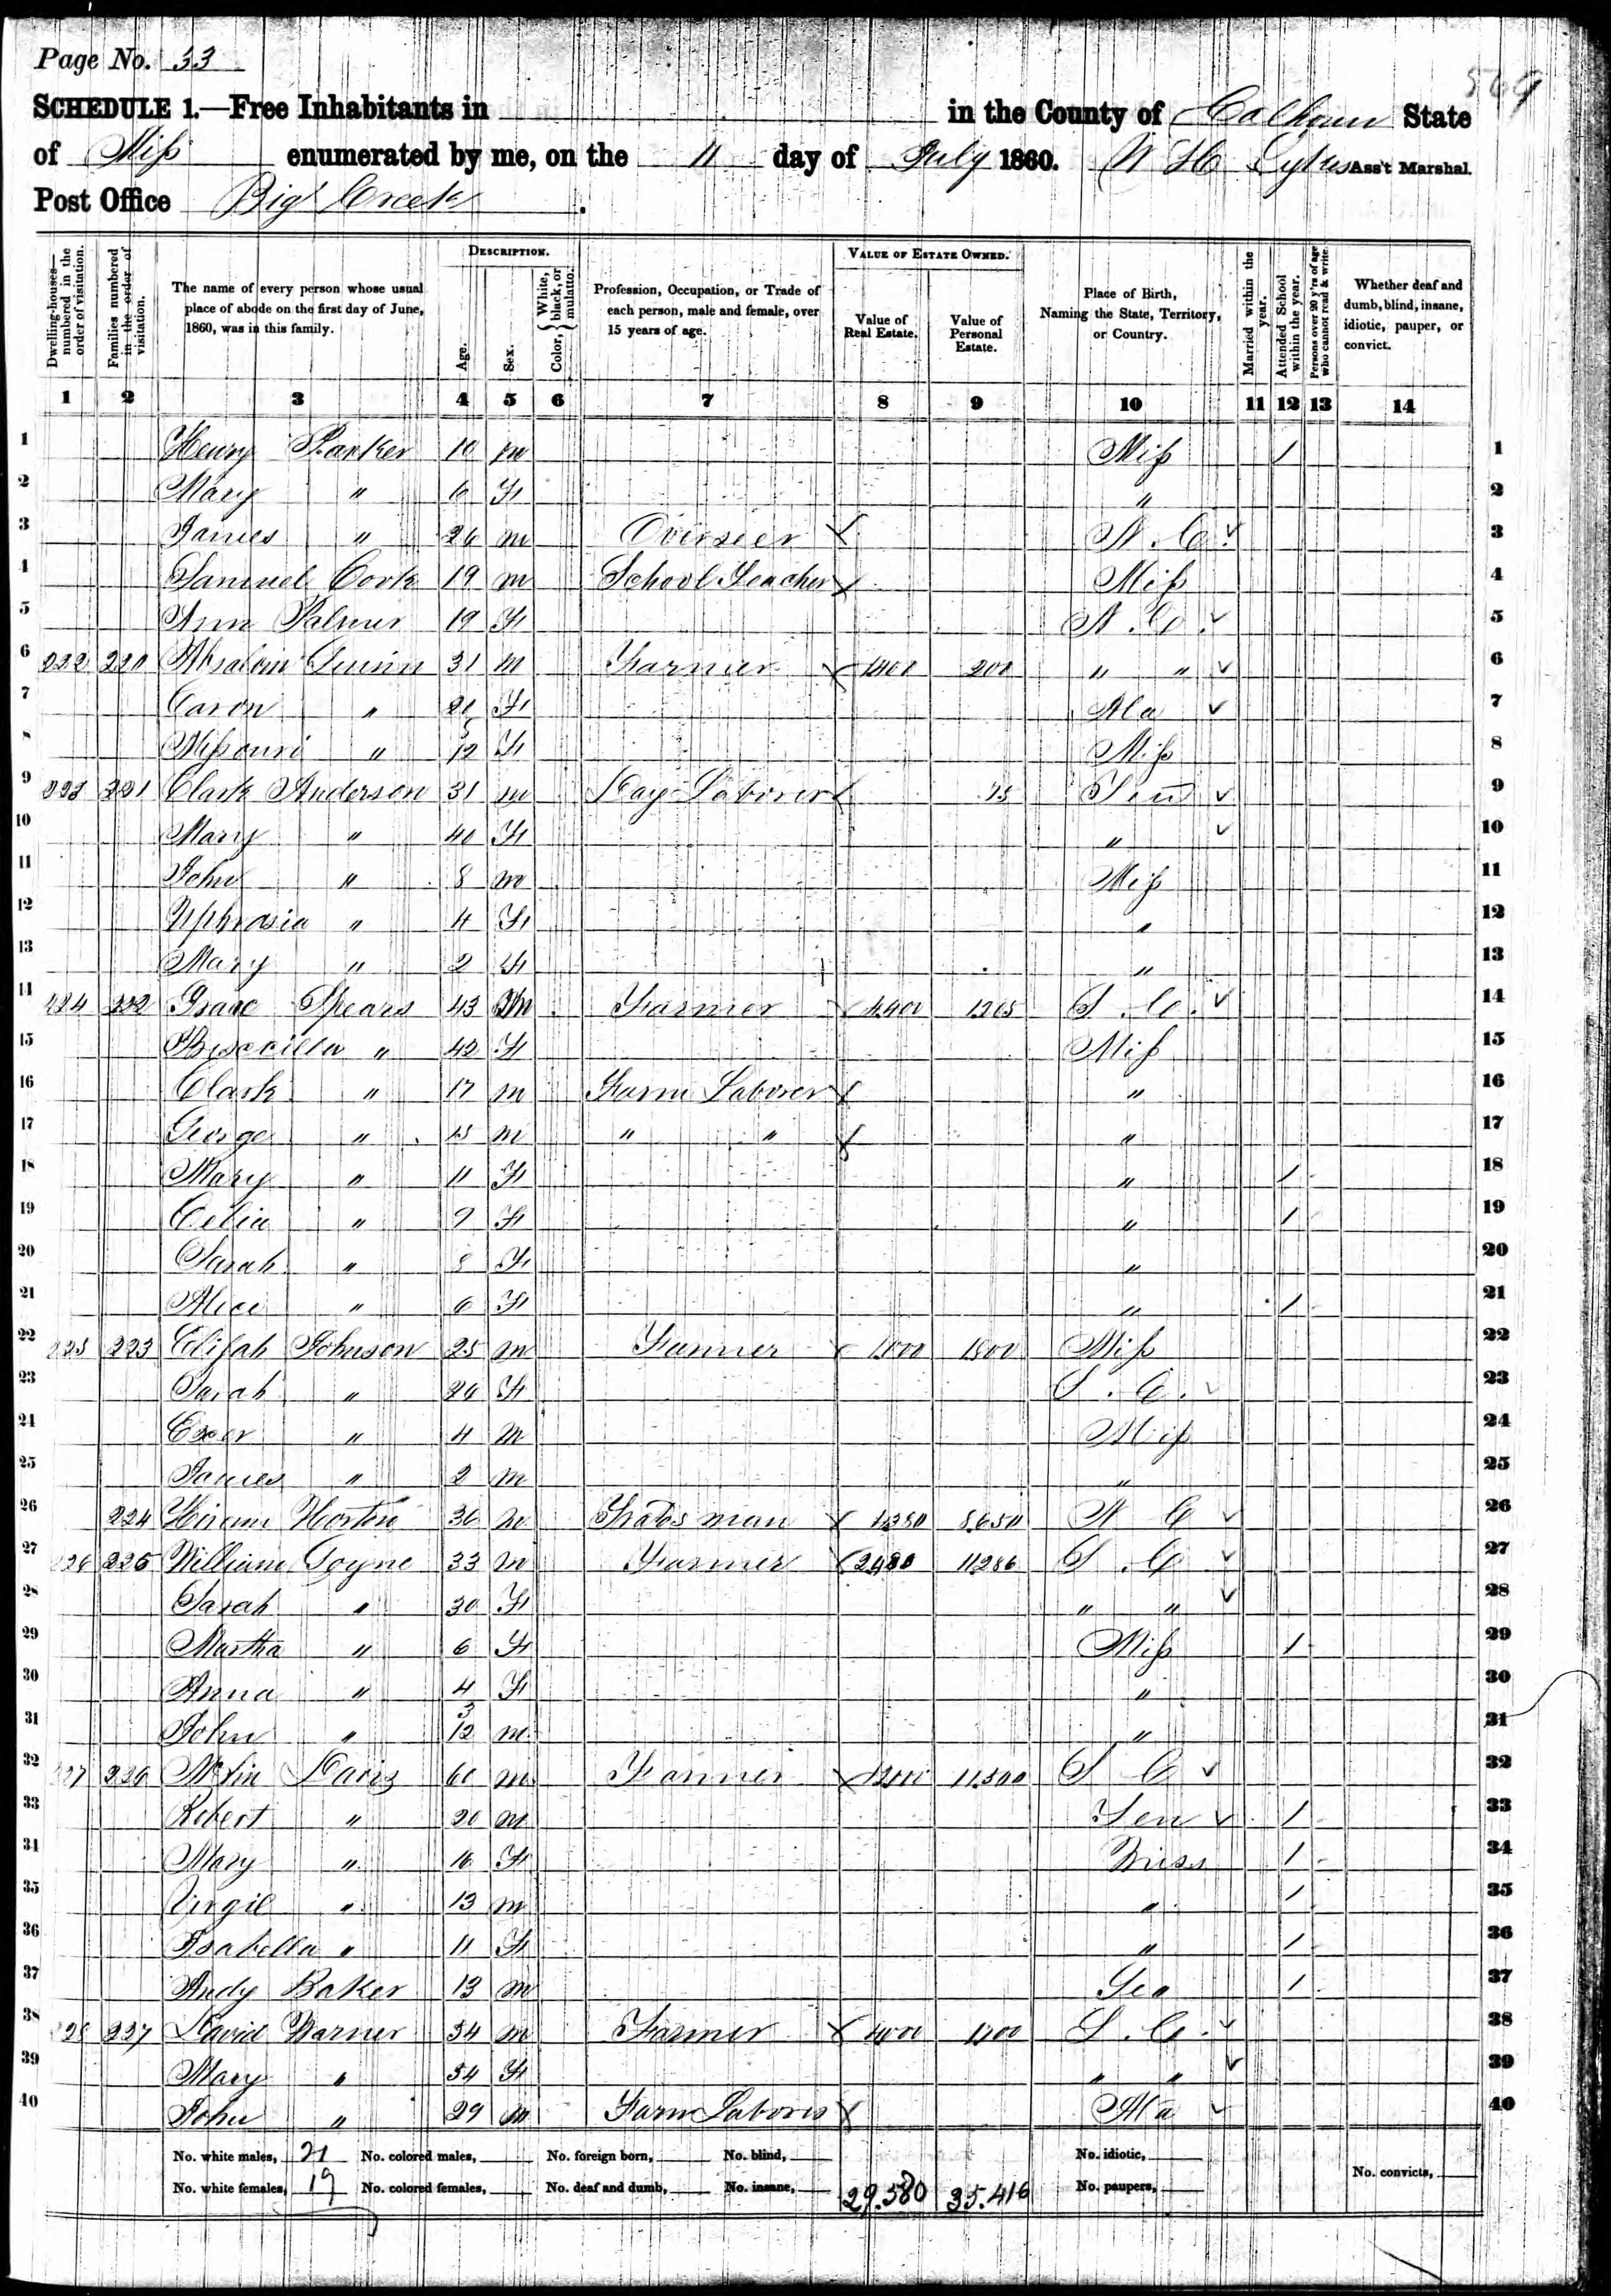 569
Page No. 33
SCHEDULE 1.—Free Inhabitants in in the County of Calhoun State
of Miss enumerated by me, on the 11 day of July 1860. W H Ass't Marshal.
Post Office Big Creek .
Dwelling-houses—numbered in the order of visitation. Families numbered in the order of visitation. The name of every person whose usual place of abode on the first day of June, 1860, was in this family. DESCRIPTION. Age. Sex. Color, { White, black, or mulatto. Profession, Occupation, or Trade of each person, male and female, over 15 years of age. VALUE OF ESTATE OWNED. Value of Real Estate. Value of Personal Estate. Place of Birth, Naming the State, Territory, or Country. Married within the year. Attended School within the year. Persons over 20 y'rs of age who cannot read & write. Whether deaf and dumb, blind, insane, idiotic, pauper, or convict.
1 2 3 4 5 6 7 8 9 10 11 12 13 14
1 Henry Parker 10 m Miss / 1
2 Mary " 6 F " 2
3 James " 26 m Overseer N. C. 3
4 Samuel Cork 19 m School Teacher Miss 4
5 Ann Palmer 19 F N. C. 5
6 222 220 Absalom Guinn 31 m Farmer 1400 200 " " 6
7 Caron " 21 F Ala 7
8 Missouri " 5/12 F Miss 8
9 223 221 Clark Anderson 31 m Day Laborer 75 Ten 9
10 Mary " 40 F " 10
11 John " 8 m Miss 11
12 " 4 F " 12
13 Mary " 2 F " 13
14 224 222 Isaac Spears 43 m Farmer 4400 1265 S. C. 14
15 Priscilla " 42 F Miss 15
16 Clark " 17 m Farm Laborer " 16
17 George " 15 m " " " 17
18 Mary " 11 F " / 18
19 Celia " 9 F " / 19
20 Sarah " 8 F " 20
21 Alice " 6 F " / 21
22 225 223 Elijah Johnson 25 m Farmer 1500 Miss 22
23 Sarah " 26 F S. C. 23
24 " 4 m Miss 24
25 James " 2 m " 25
26 224 Hiram Horton 36 m 8650 N C 26
27 226 225 William Goyne 33 m Farmer 2480 11286 S. C 27
28 Sarah " 30 F " " 28
29 Martha " 6 F Miss / 29
30 Anna " 4 F " 30
31 John " 3/12 m " 31
32 227 226 Davis 60 m Farmer 12000 11,500 S C 32
33 Robert " 20 m Ten / 33
34 Mary " 16 F Miss / 34
35 Virgil " 13 m " / 35
36 Isabella " 11 F " / 36
37 Andy Baker 13 m Geo / 37
38 228 227 David Warner 54 m Farmer S. C. 38
39 Mary " 54 F " " 39
40 John " 29 m Farm Laborer Ala 40
No. white males, 21 No. colored males, No. foreign born, No. blind, No. idiotic,
No. white females, 19 No. colored females, No. deaf and dumb, No. insane, 29.580 35.416 No. paupers, No. convicts,